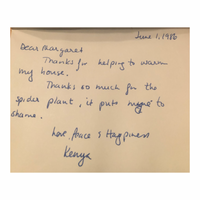 June 1, 1986
Dear Margaret
Thanks for helping to warm
my house.
Thanks so much for the
spider plant, it puts mine to
shame.
Love Peace & Happiness
Kenya